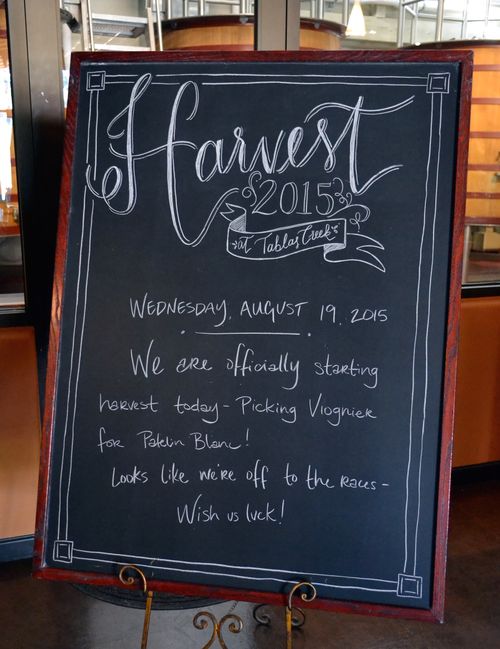 Harvest
2015
at Tablas Creek
WEDNESDAY, AUGUST 19, 2015
We are officially starting
harvest today - Picking Viognier
for Patelin Blanc!
Looks like we're off to the races -
Wish us luck!